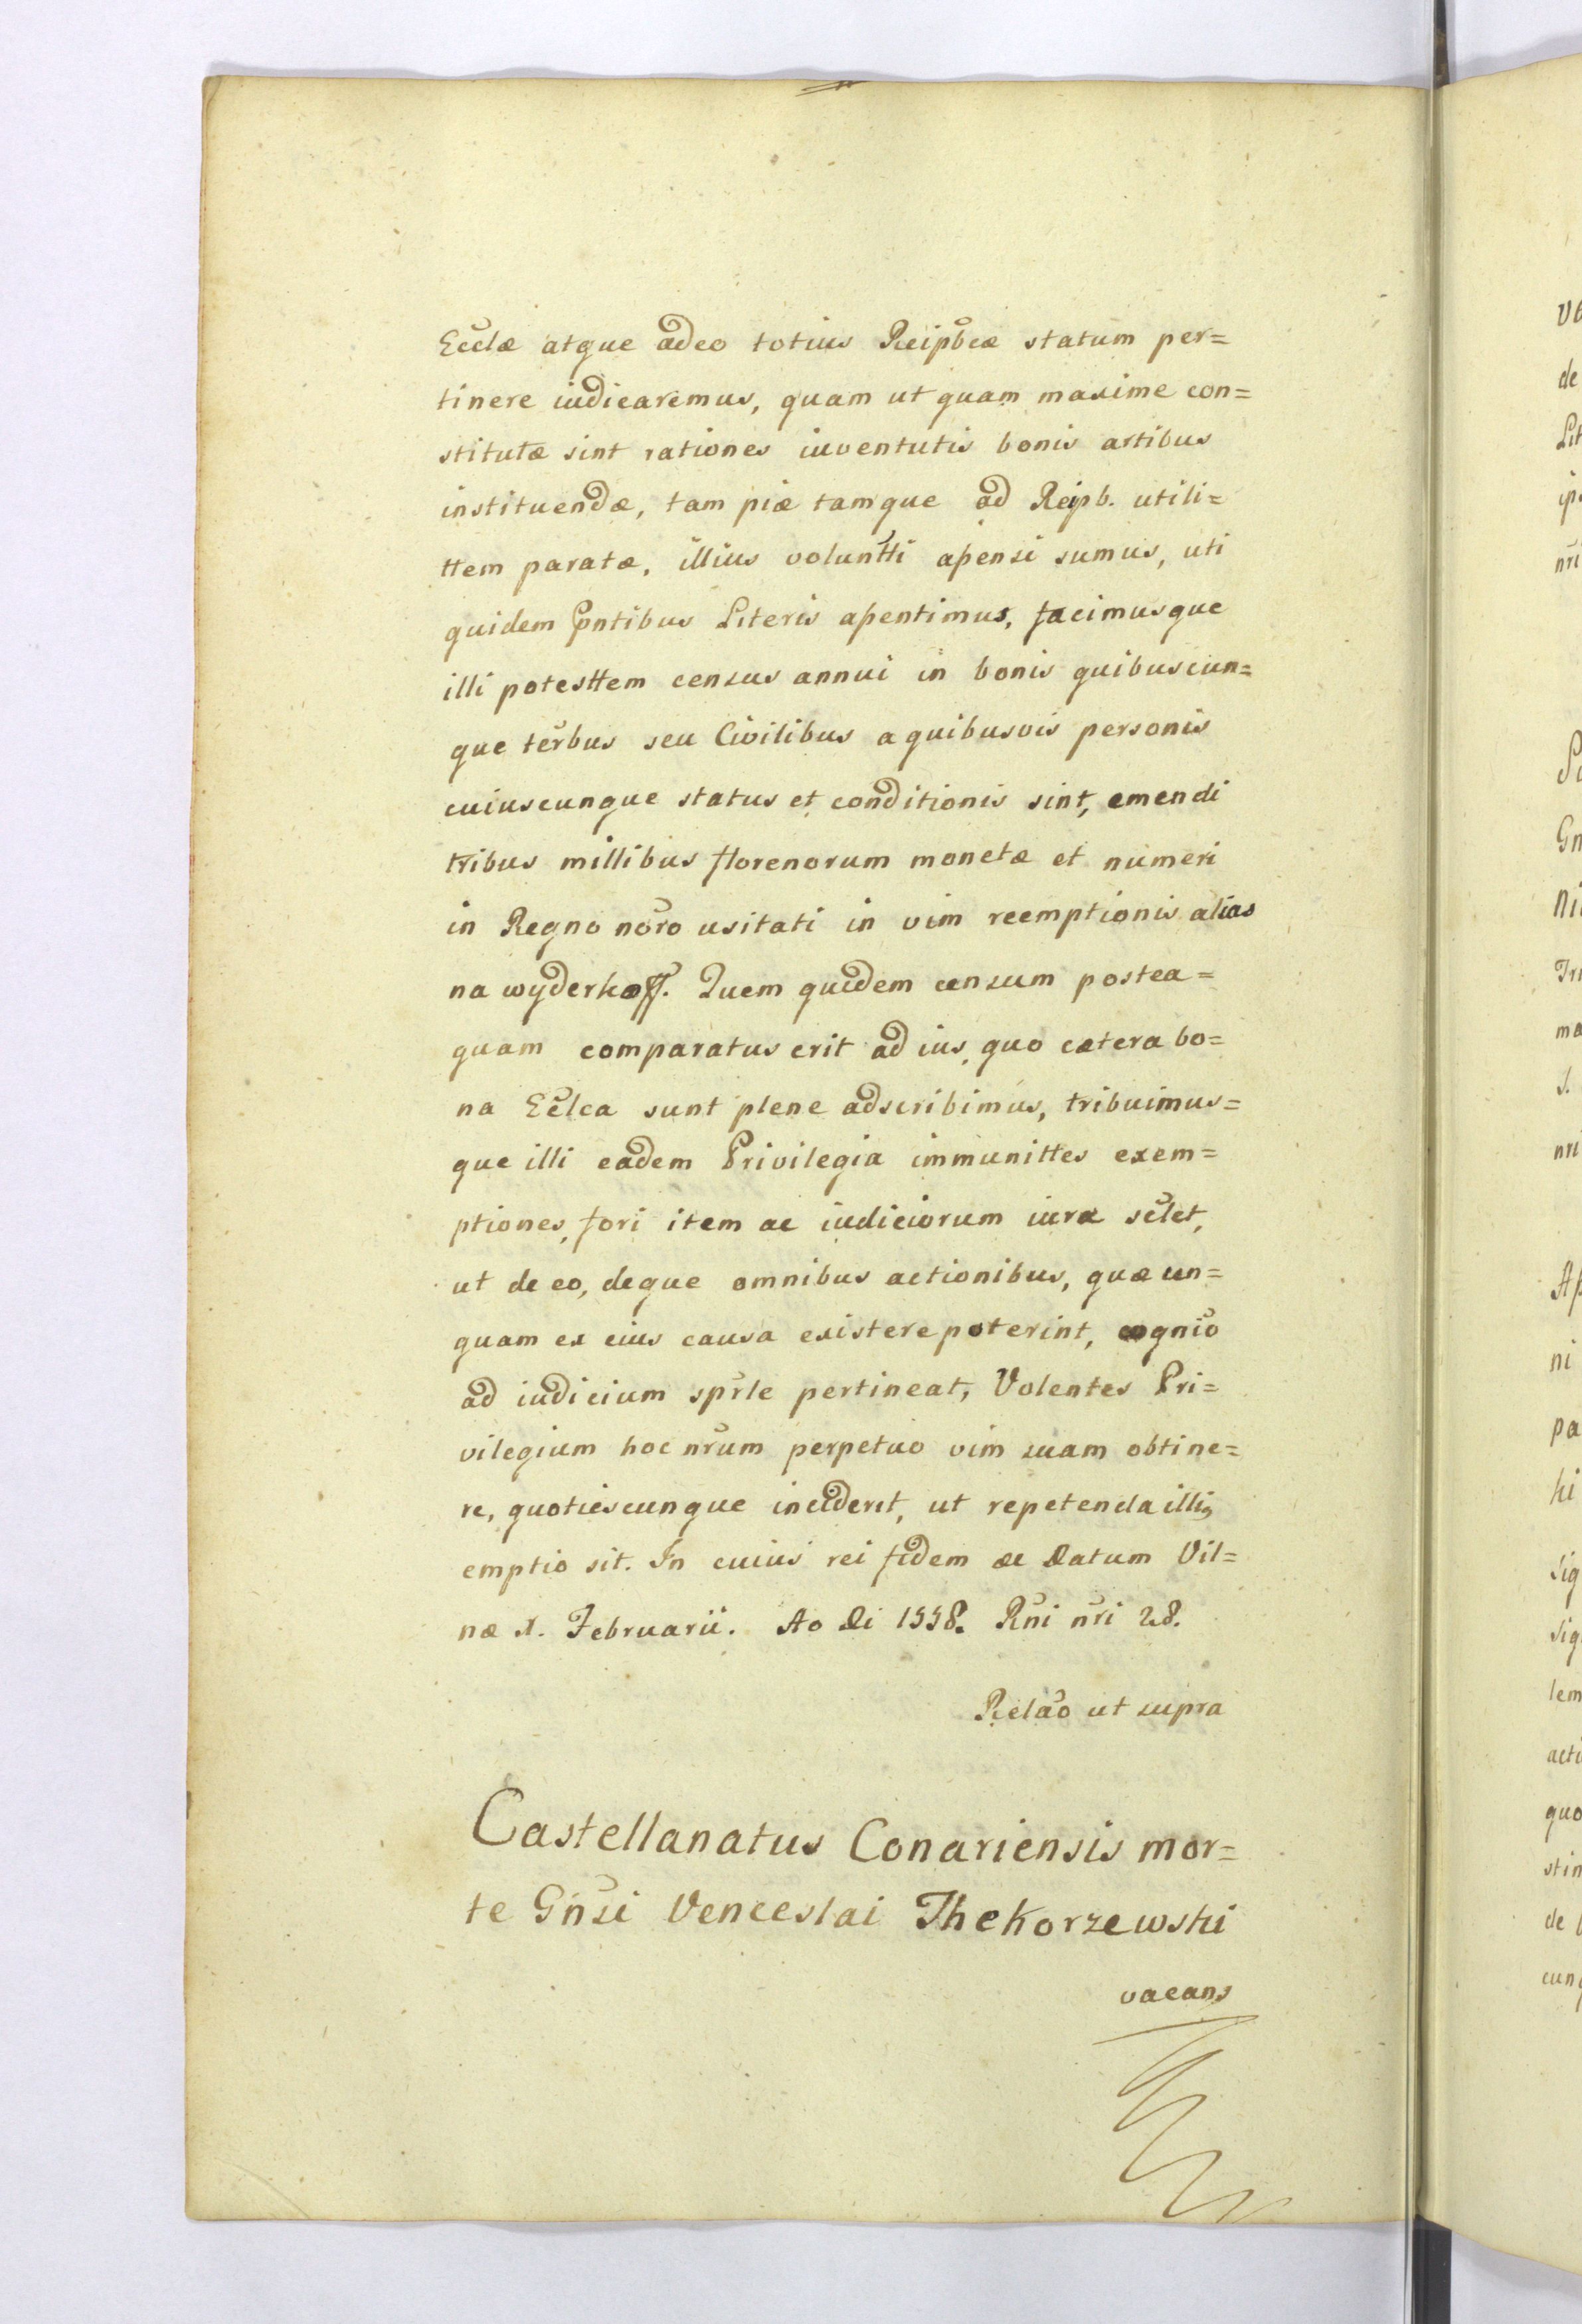 Ecclæ atque adeo totius Reipbcæ statum per=
tinere iudicaremus, quam ut quam maxime con=
stitutæ sint rationes iuventutis bonis artibus
instituendæ, tam piæ tamque ad Reipb. utili=
ttem paratæ, illius voluntti apensi sumus, uti
quidem pntibus Literis apentimus, facimusque
illi potesttem census annui in bonis quibuscun=
que terbus seu Civilibus a quibusvis personis
cuiuscunque status et conditionis sint, emendi
tribus millibus florenorum monetæ et numeri
in Regno noro usitati in vim reemptionis alias
na wyderkoff. Quem quidem censum postea=
quam comparatus erit ad ius, quo cætera bo=
na Eclca sunt plene adscribimus, tribuimus=
que illi eadem Privilegia immunittes exem=
ptiones, fori item ac iudiciorum iura sclet,
ut de eo, deque omnibus actionibus, quæ un=
quam ex eius causa existere poterint, cognio
ad iudicium sprle pertineat, Volentes Pri=
vilegium hoc nrum perpetuo vim suam obtine=
re, quotiescunque inciderit, ut repetenda illis
emptio sit. In cuius rei fidem &c Datum Vil=
næ X. Februarii. Ao Di 1558. Rni nri 28.
Relao ut supra
Castellanatus Conariensis mor=
te Gnsi Venceslai Thekorzewski
vacans